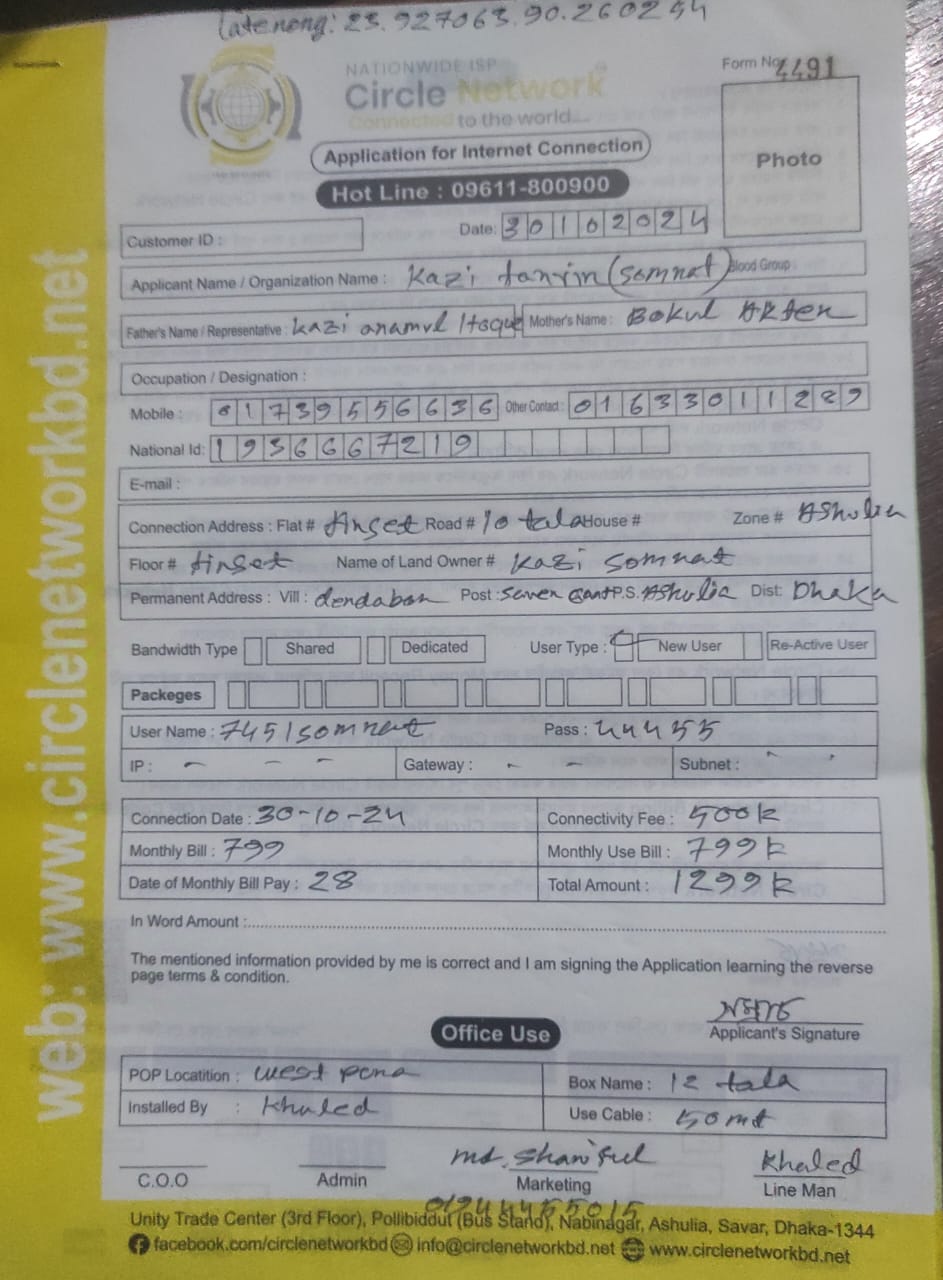 Latenong: 23.927063.90.260254
NATIONWIDE ISP
Circle Network
Connected to the world...
Form No 4491
Photo
Application for Internet Connection
Hot Line : 09611-800900
Customer ID :
Date: 30102024
Applicant Name / Organization Name : Kazi tanvin (somnat) Blood Group :
Father's Name / Representative : Kazi anamul Haque Mother's Name : Bokul Akter
Occupation / Designation :
Mobile : 01739556636 Other Contact : 01633011289
National Id: 1936667219
E-mail :
Connection Address : Flat # tinset Road # 10 tala House # Zone # Ashulia
Floor # tinset Name of Land Owner # Kazi somnat
Permanent Address : Vill : dendabon Post : P.S. Ashulia Dist: Dhaka
Bandwidth Type Shared Dedicated User Type : New User Re-Active User
Packeges
User Name : 7451somnat Pass : 44455
IP : - - - Gateway : - - Subnet :
Connection Date : 30-10-24 Connectivity Fee : 500k
Monthly Bill : 799 Monthly Use Bill : 799k
Date of Monthly Bill Pay : 28 Total Amount : 1299k
In Word Amount :
The mentioned information provided by me is correct and I am signing the Application learning the reverse
page terms & condition.
Applicant's Signature
Office Use
POP Locatition : west pona Box Name : 12 tala
Installed By : Khaled Use Cable : 50 mt
md. Shariful Khaled
C.O.O Admin Marketing Line Man
Unity Trade Center (3rd Floor), Pollibiddut (Bus Stand), Nabinagar, Ashulia, Savar, Dhaka-1344
facebook.com/circlenetworkbd info@circlenetworkbd.net www.circlenetworkbd.net
web: www.circlenetworkbd.net